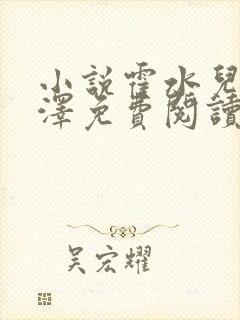 小說霍水兒
澤免費閱讀
吴宏耀